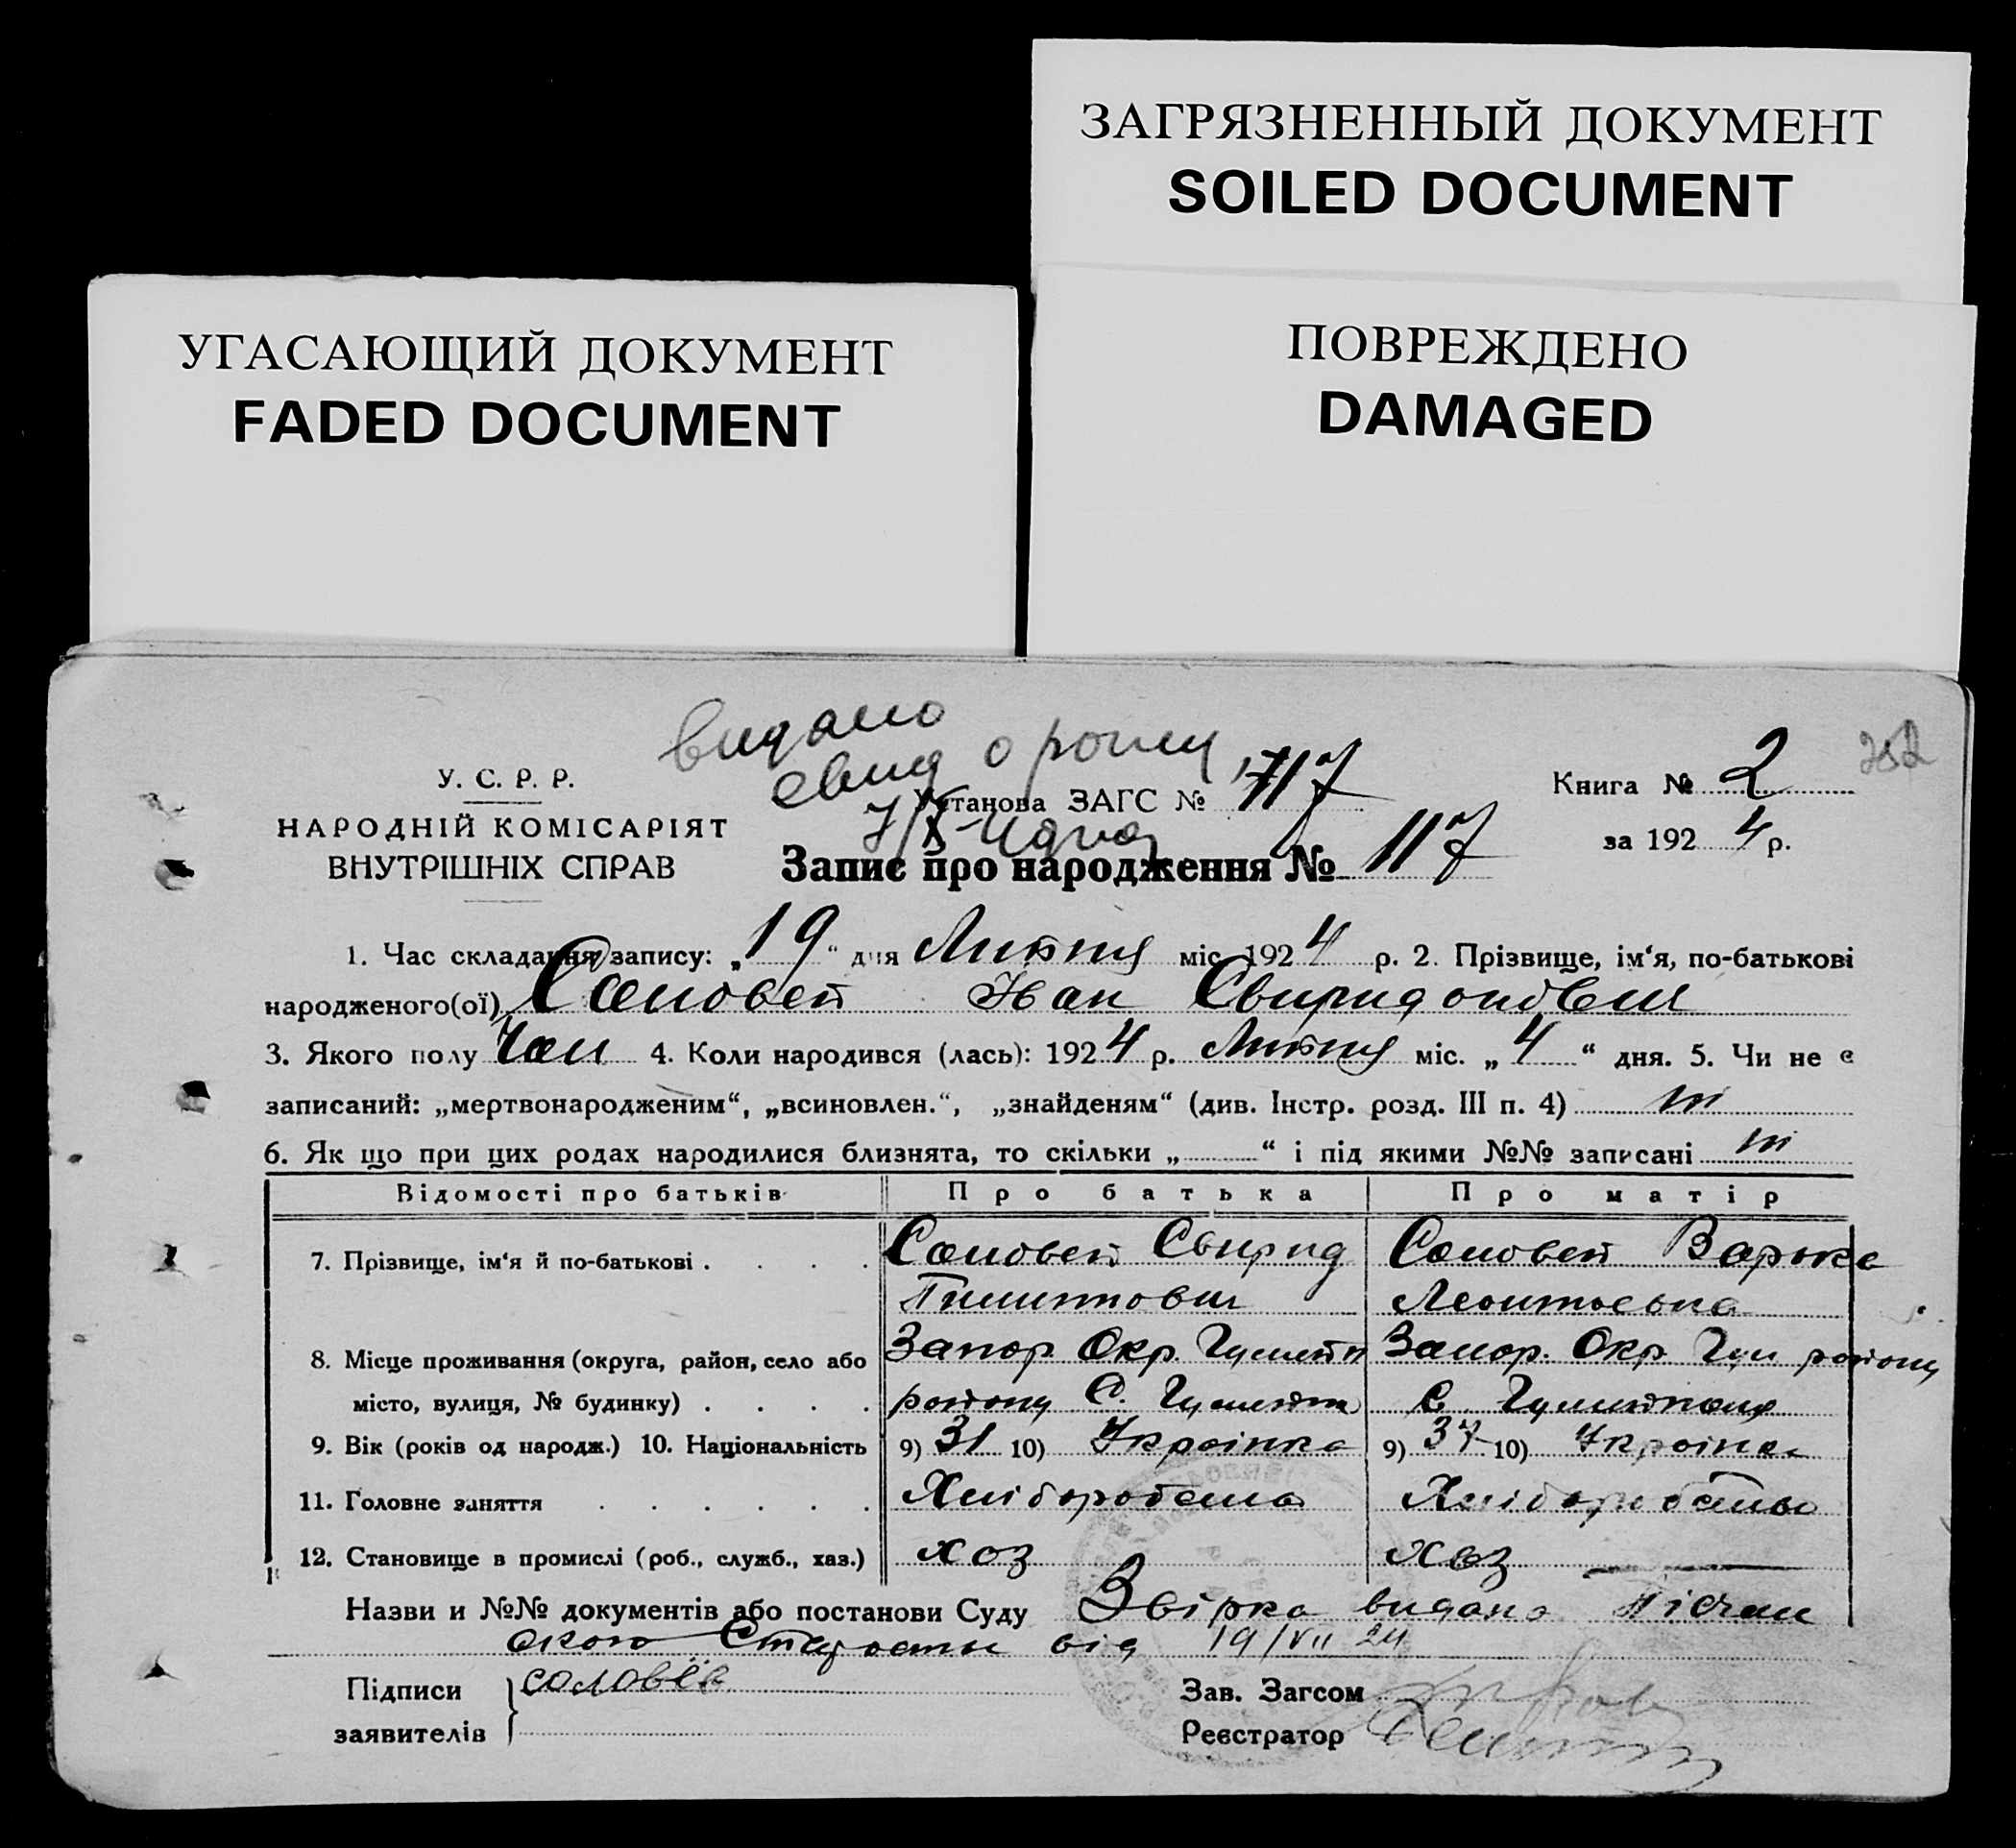 ЗАГРЯЗНЕННЫЙ ДОКУМЕНТ
SOILED DOCUMENT
УГАСАЮЩИЙ ДОКУМЕНТ
FADED DOCUMENT
ПОВРЕЖДЕНО
DAMAGED
видано
свид о рожд
7/X-
У. С. Р. Р.
НАРОДНІЙ КОМІСАРІЯТ
ВНУТРІШНІХ СПРАВ
Установа ЗАГС № 117
Книга № 2
за 1924 р.
Запис про народження № 117
1. Час складання запису: „19“ дня Липня міс. 1924 р. 2. Прізвище, ім‘я, по-батькові
народженого(ої) Соловей Іван Свиридонович
3. Якого полу Чол 4. Коли народився (лась): 1924 р. Липня міс. „4“ дня. 5. Чи не є
записаний: „мертвонародженим“, „всиновлен.“, „знайденям“ (див. Інстр. розд. III п. 4) ні
6. Як що при цих родах народилися близнята, то скільки „ “ і під якими №№ записані ні
Відомості про батьків Про батька Про матір
7. Прізвище, ім‘я й по-батькові . . . . Соловей Свирид Соловей Варька
Пилипович Леонтьевна
8. Місце проживання (округа, район, село або Запор Окр. Гуляйп Запор. Окр Гул району
місто, вулиця, № будинку) . . . . району С. Гуляйпол С. Гуляйполя
9. Вік (років од народж.) 10. Національність 9) 31 10) Українка 9) 37 10) Українка
11. Головне заняття . . . . . . Хліборобство Хліборобство
12. Становище в промислі (роб., служб., хаз.) хоз хоз
Назви и №№ документів або постанови Суду Звірка видана Пісчан
ского Старосты від 19/VII 24
Підписи
заявителів
соловей
Зав. Загсом
Реєстратор